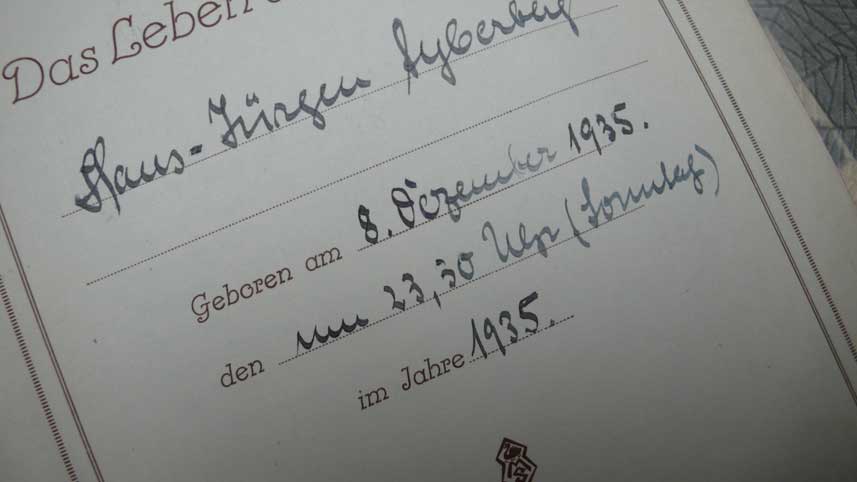 Das Leben
Hans-Jürgen Syberberg
Geboren am 8. Dezember 1935.
den um 23,30 Uhr (Sonntag)
im Jahre 1935.